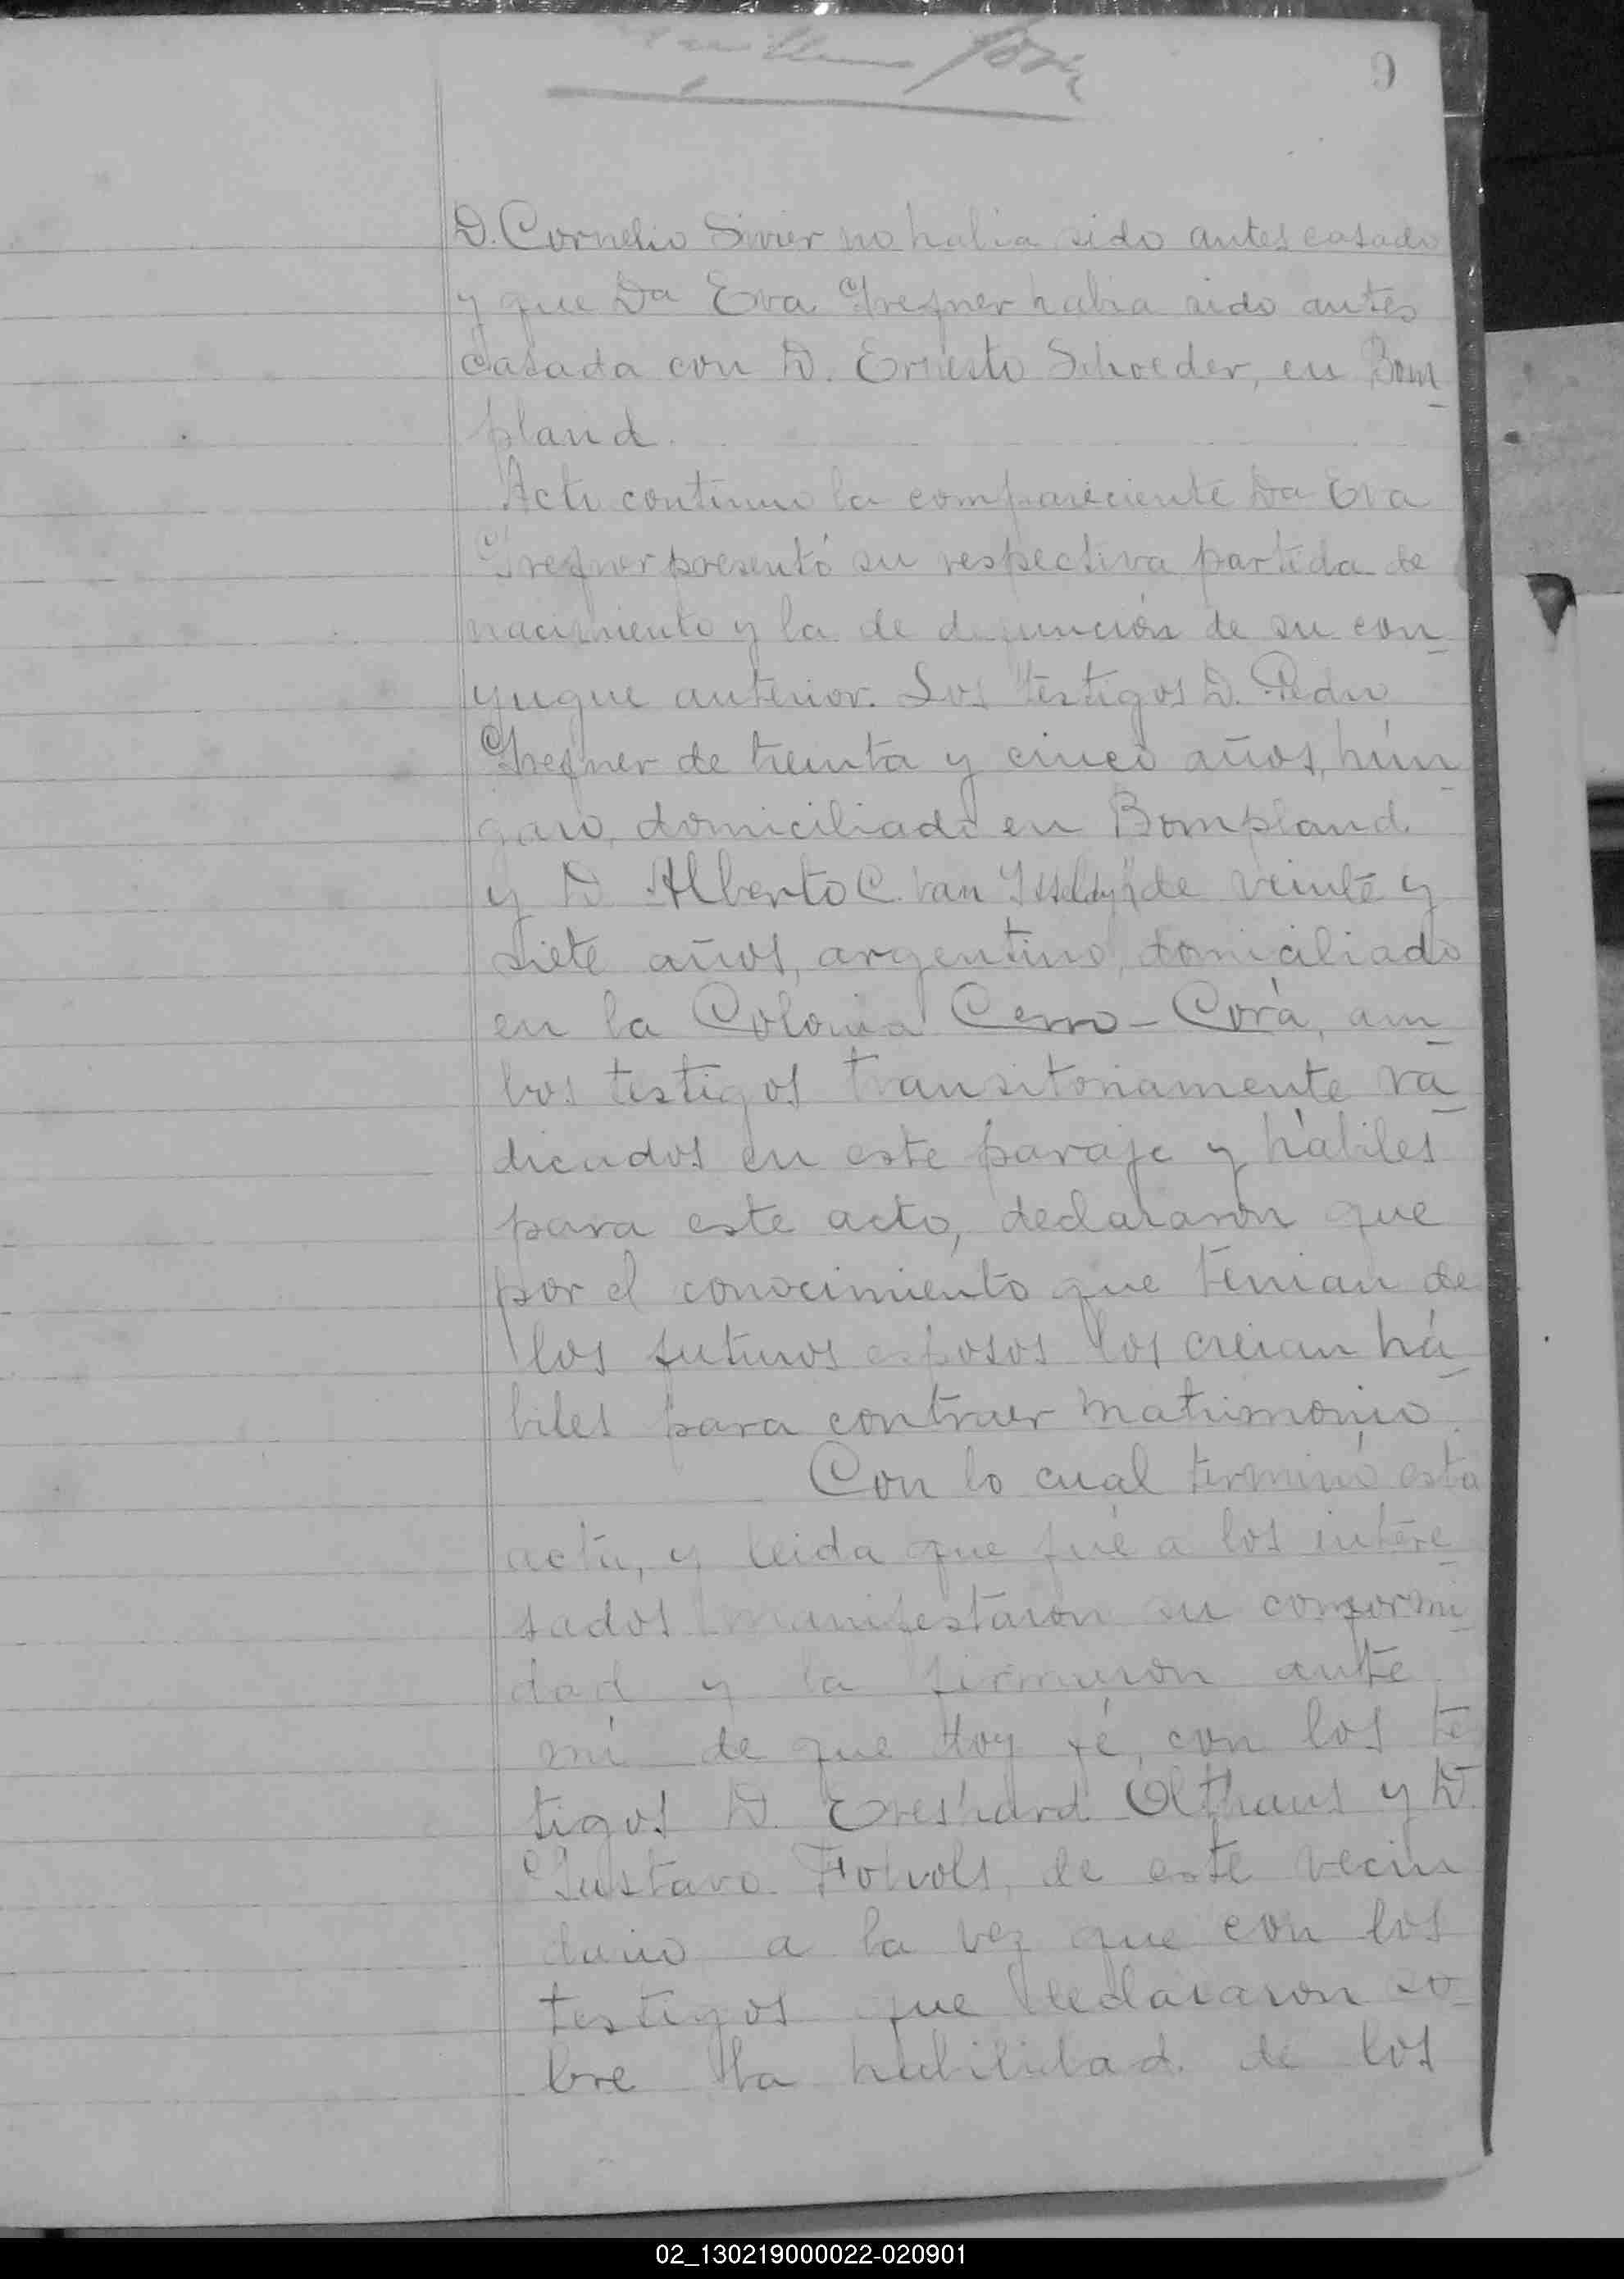 9
D. Cornelio Sivier no habia sido antes casado
y que Da Eva Grefner habia sido antes
casada con D. Ernesto Schoeder, en Bom-
pland.
Acto continuo la compareciente Da Eva
Grefner presentó su respectiva partida de
nacimiento y la de defunción de su con-
yugue anterior. Los testigos D. Pedro
Grefner de treinta y cinco años, hún-
garo, domiciliado en Bompland
y D. Alberto C. Van de veinte y
siete años, argentino, domiciliado
en la Colonia Cerro-Corá, am-
bos testigos transitoriamente ra-
dicados en este paraje y hábiles
para este acto, declararon que
por el conocimiento que tenian de
los futuros esposos los creian há-
biles para contraer matrimonio.
Con lo cual terminó esta
acta, y leida que fué a los intere-
sados manifestaron su conformi-
dad y la firmaron ante
mí de que doy fé, con los te
tigos D. Olthaus y D.
Gustavo de este vecin
dario a la vez que con los
testigos que declararon so-
bre la habilidad de los
02_130219000022-020901